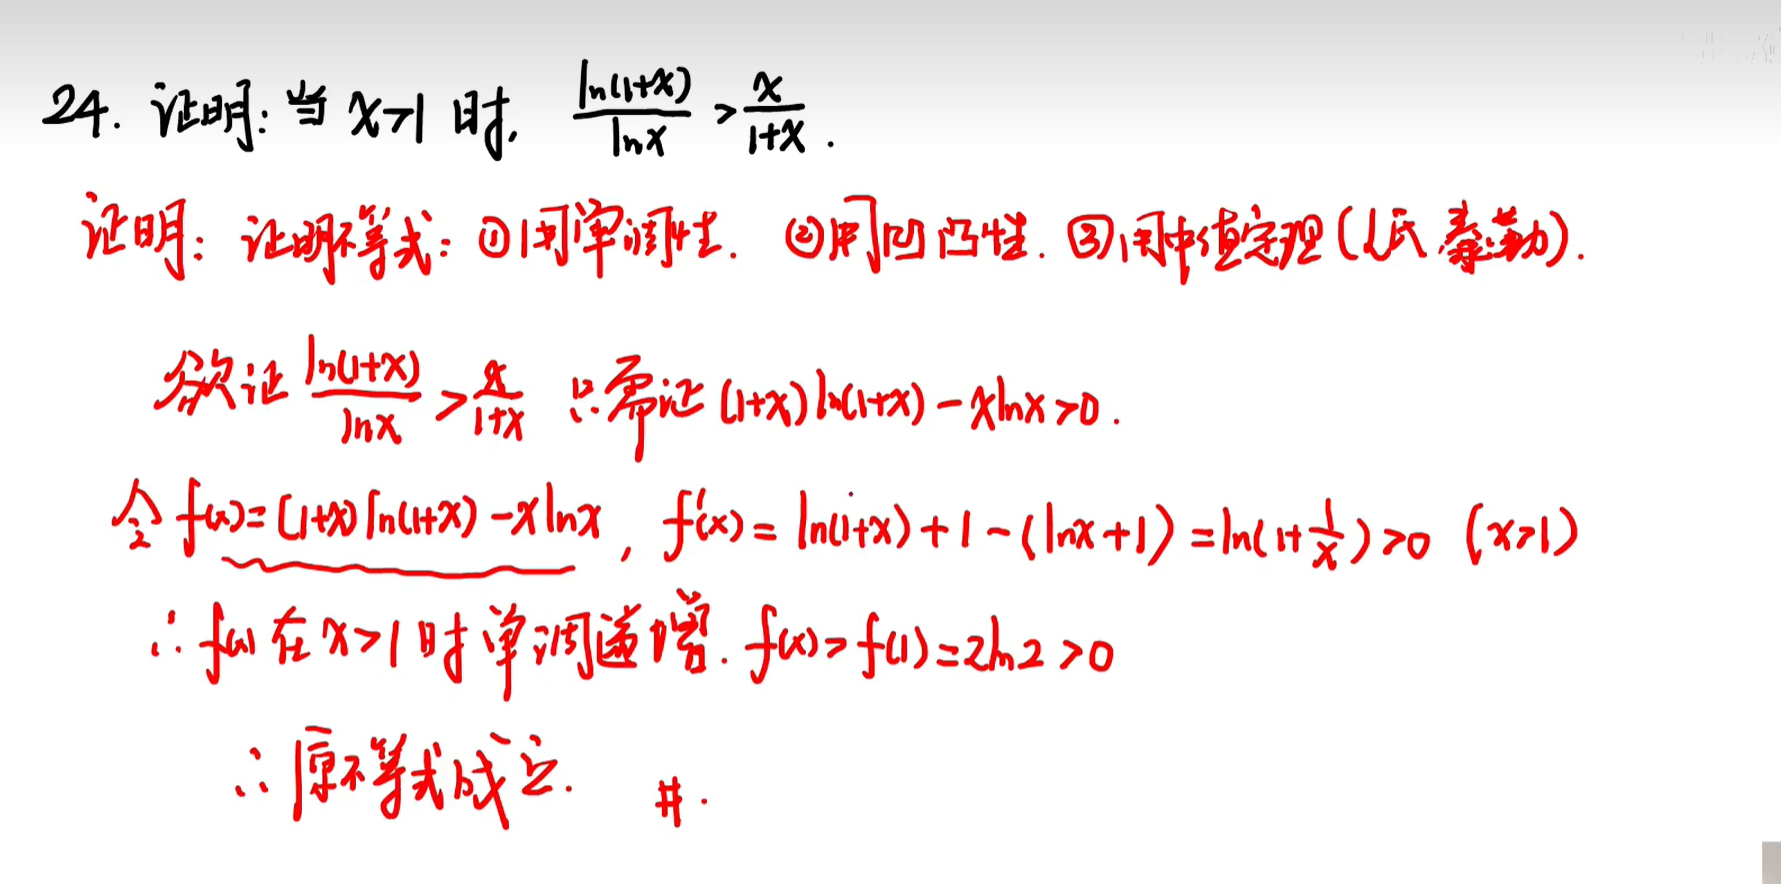 24. 证明: 当 x>1 时, ln(1+x)/lnx > x/(1+x).
证明: 证明不等式: ①用单调性. ②用凹凸性. ③用中值定理(L氏 泰勒).
欲证 ln(1+x)/lnx > x/(1+x) 只需证 (1+x)ln(1+x) - xlnx>0.
令 f(x)=(1+x)ln(1+x)-xlnx, f'(x)= ln(1+x)+1-(lnx+1)=ln(1+1/x)>0 (x>1)
∴ f(x) 在 x>1 时 单调递增. f(x)>f(1)=2ln2>0
∴ 原不等式成立. #.